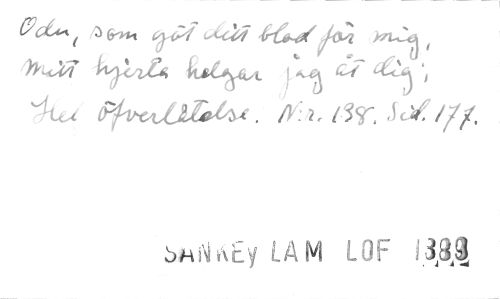 O du, som göt ditt blod för mig,
Mitt hjerta helgar jag åt dig;
Hel öfverlåtelse. N:r. 138. Sid. 177.
SANKEY LAM LOF 1889